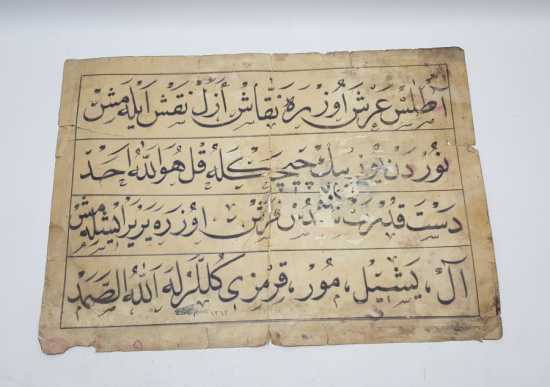 أطلس عرش اوزره نقاش أزل نقش ايله مش
نوردن يوز بيك چيچكله قل هو الله احد
دست قدرت اوزره ير ير ايشله مش
آل، يشيل، مور، قرمزى كللرله الله الصمد
١٣٦٢